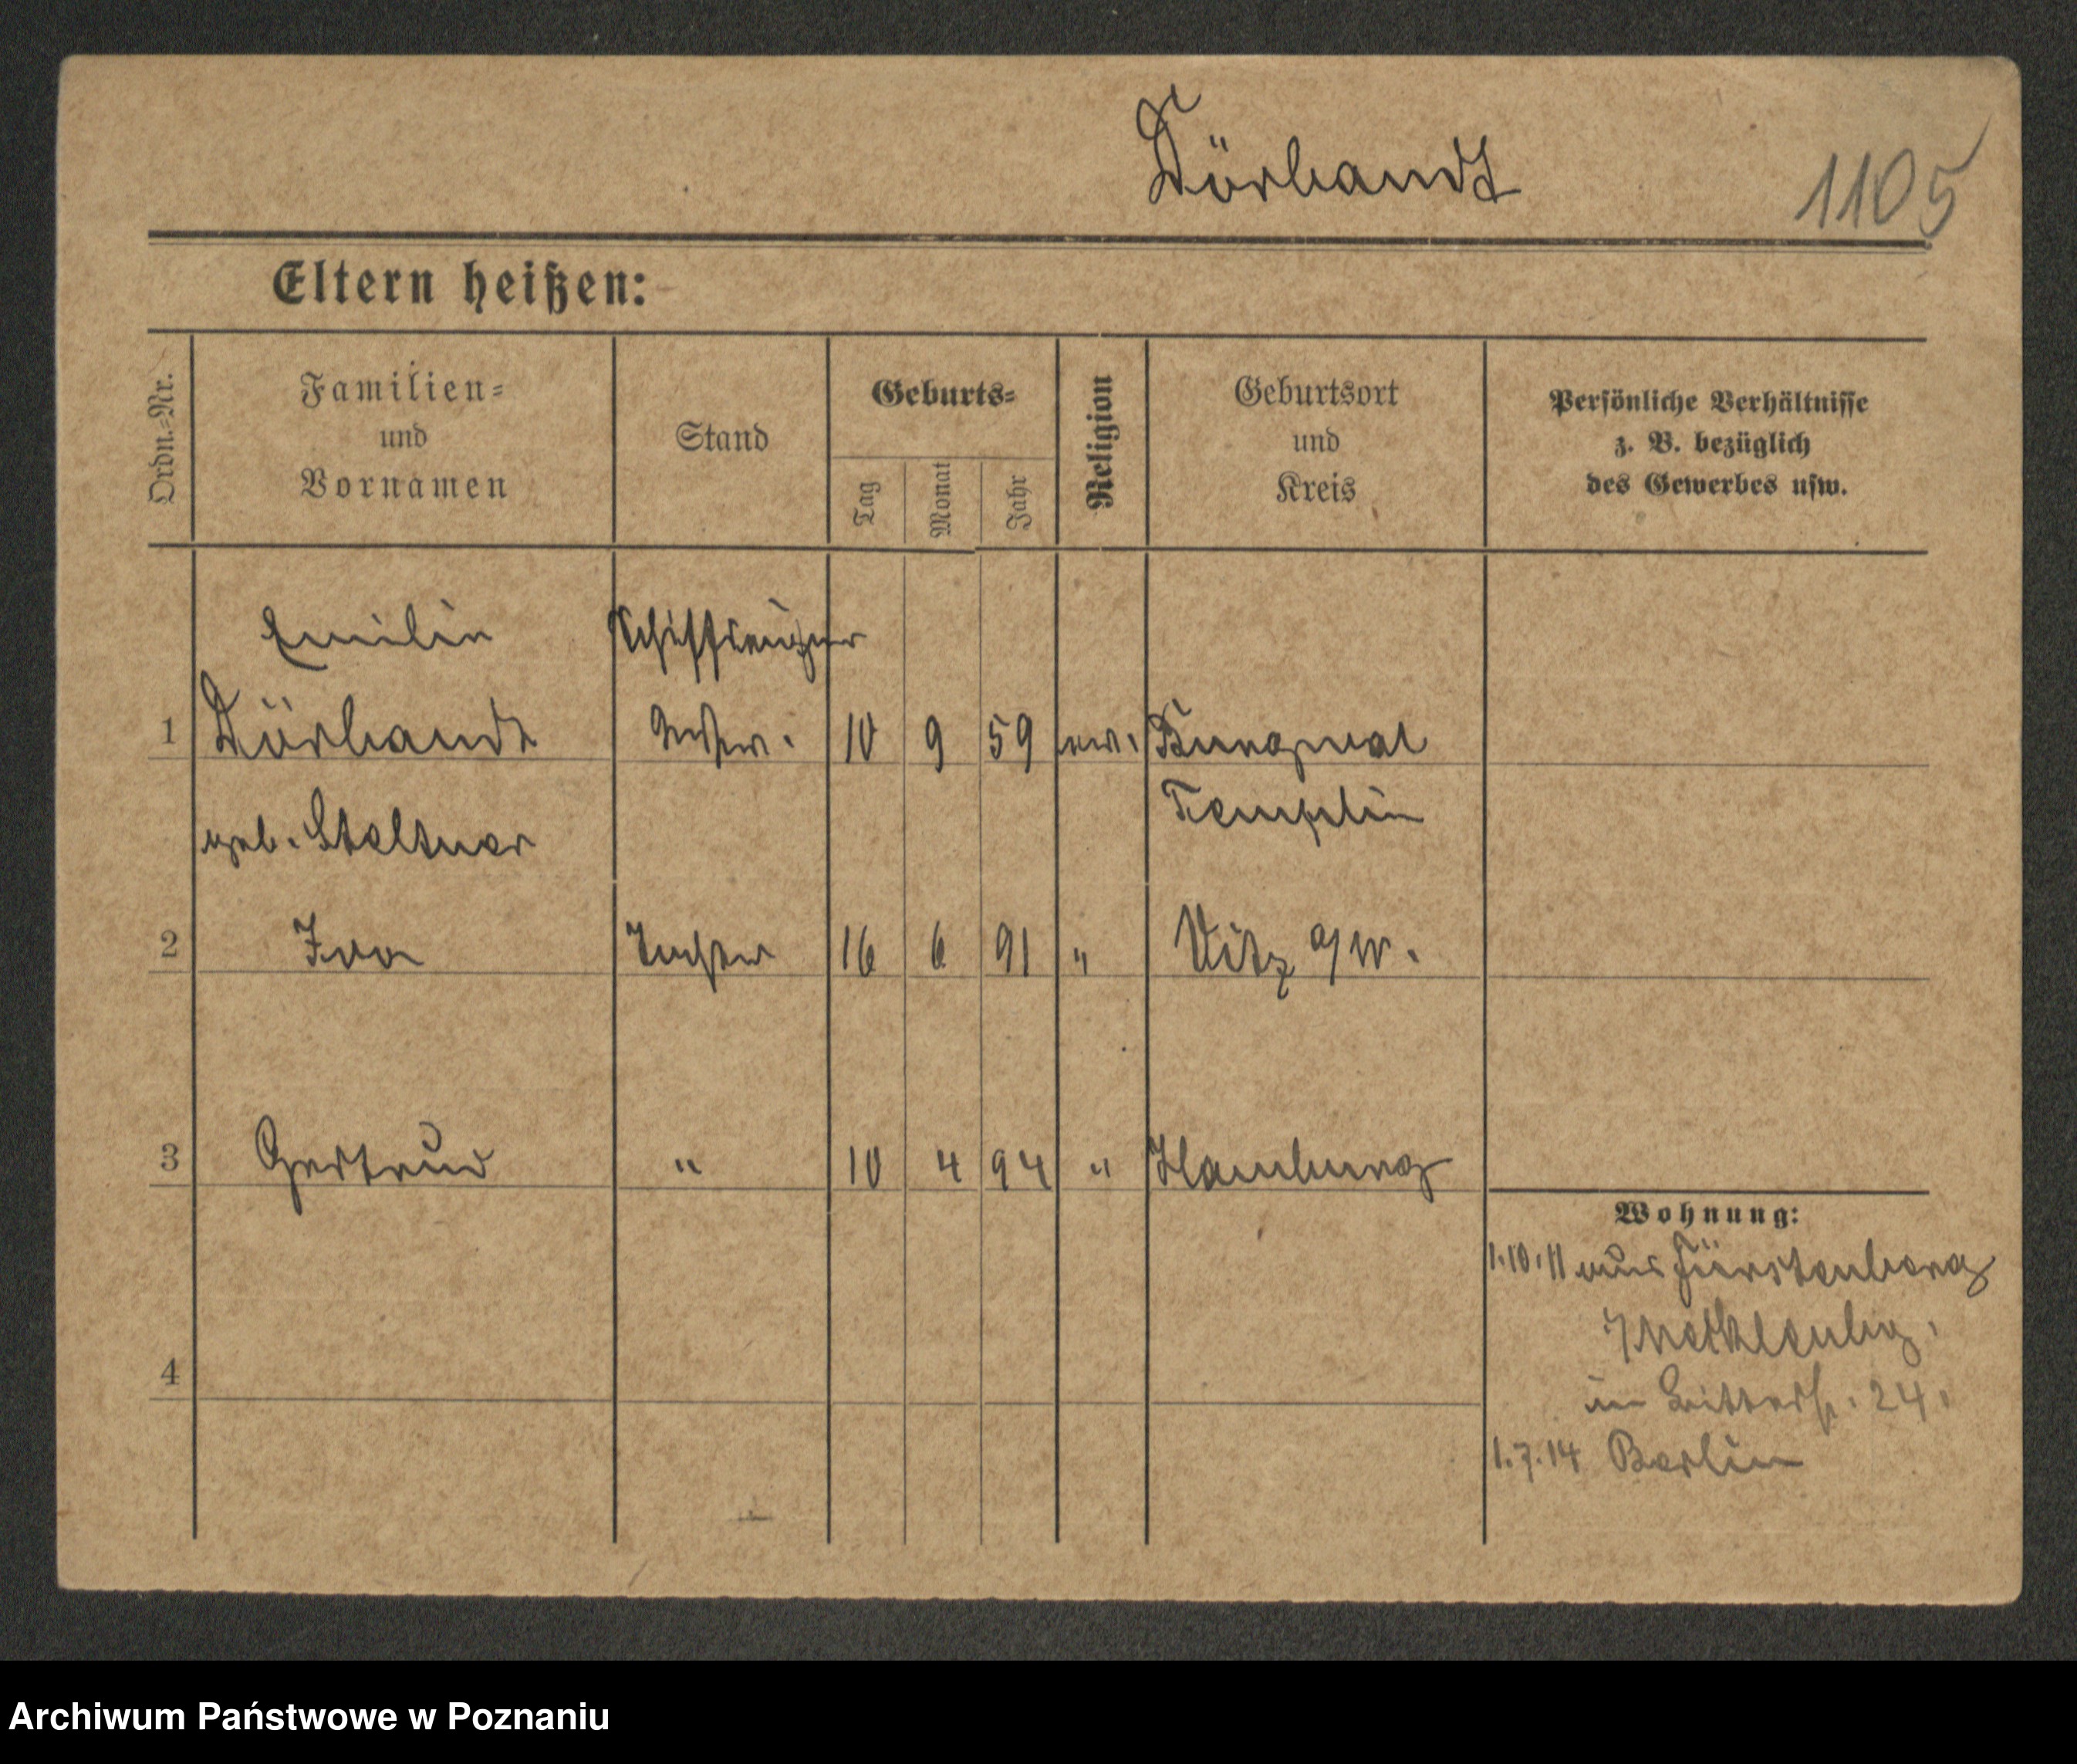 Dörbandt
1105
Eltern heißen:
Ordn.=Nr.
Familien=
und
Vornamen
Stand
Geburts=
Tag
Monat
Jahr
Religion
Geburtsort
und
Kreis
Persönliche Verhältnisse
z. B. bezüglich
des Gewerbes usw.
Emilie Schiffseigner
1 Dörbandt 10 9 59 ev.
Templin
geb. Steltner
2 Tochter 16 6 91 "
3 Gertrud " 10 4 94 " Hamburg
Wohnung:
1.10.11 aus Fürstenberg
i/Mecklenbg.
in Ritterstr. 24.
4
1.7.14 Berlin
Archiwum Państwowe w Poznaniu